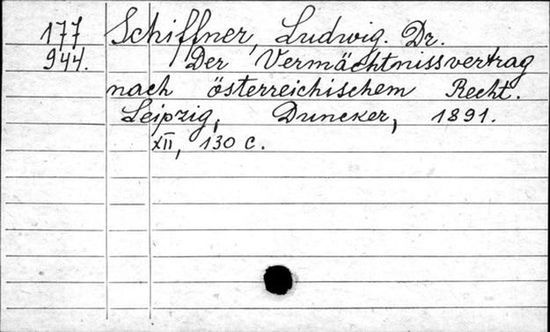 177 Schiffner, Ludwig. Dr.
944. Der Vermächtnissvertrag
nach österreichischem Recht.
Leipzig, Duncker, 1891.
XII, 130 c.